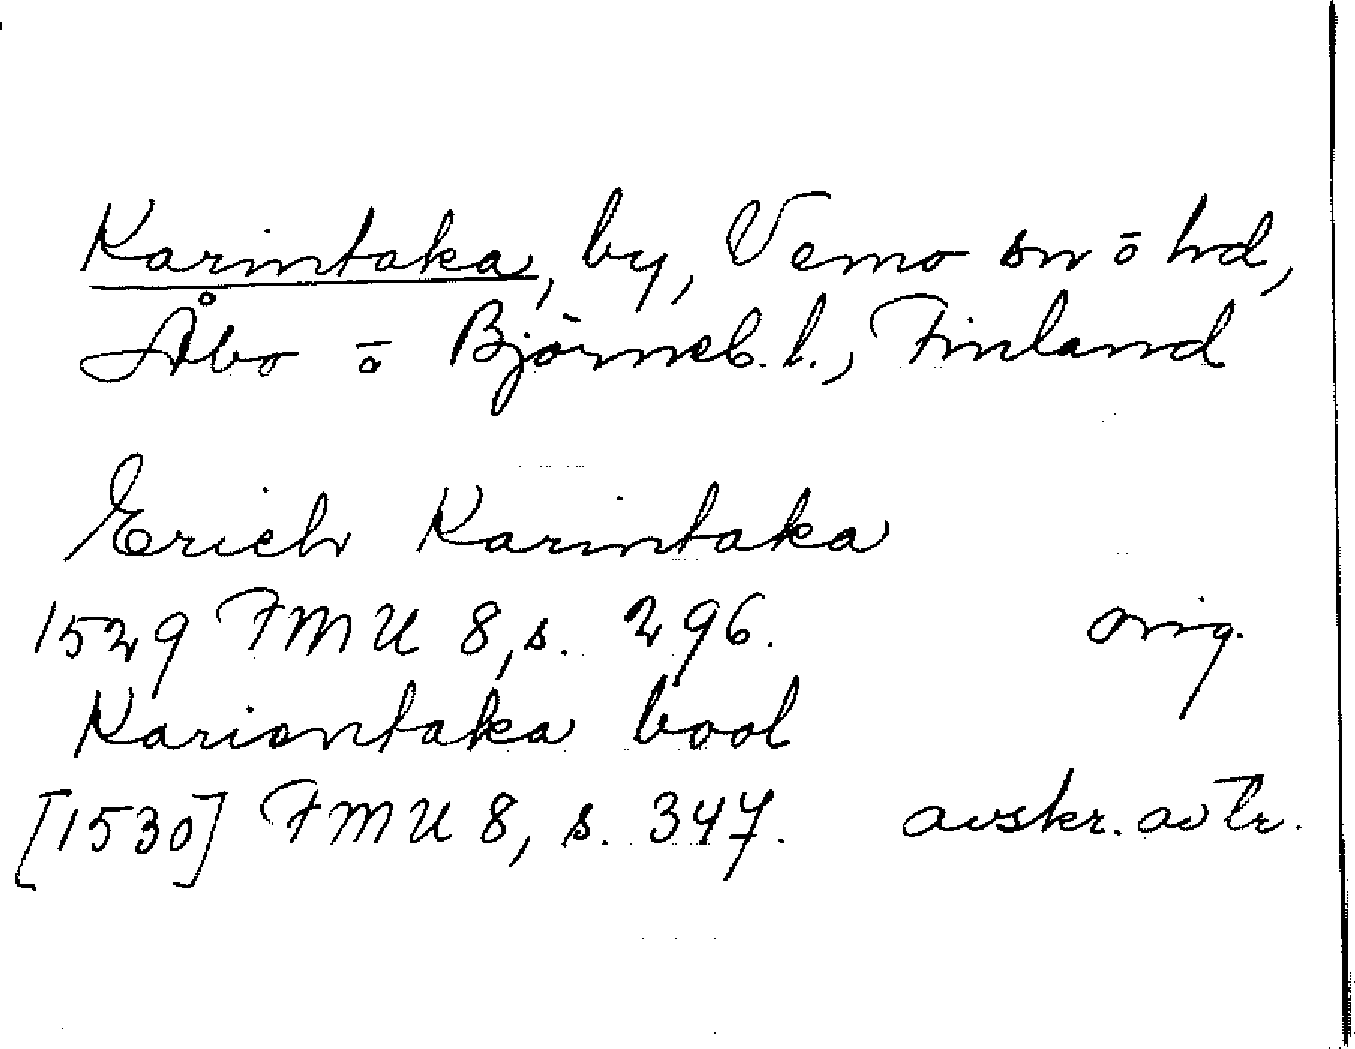 Karintaka, by, Vemo sn ō hd,
Åbo ō Björneb. l., Finland
Erich Karintaka
1529 FMU 8, s. 296. orig.
Kariantaka bool
[1530] FMU 8, s. 347. avskr. av tr.